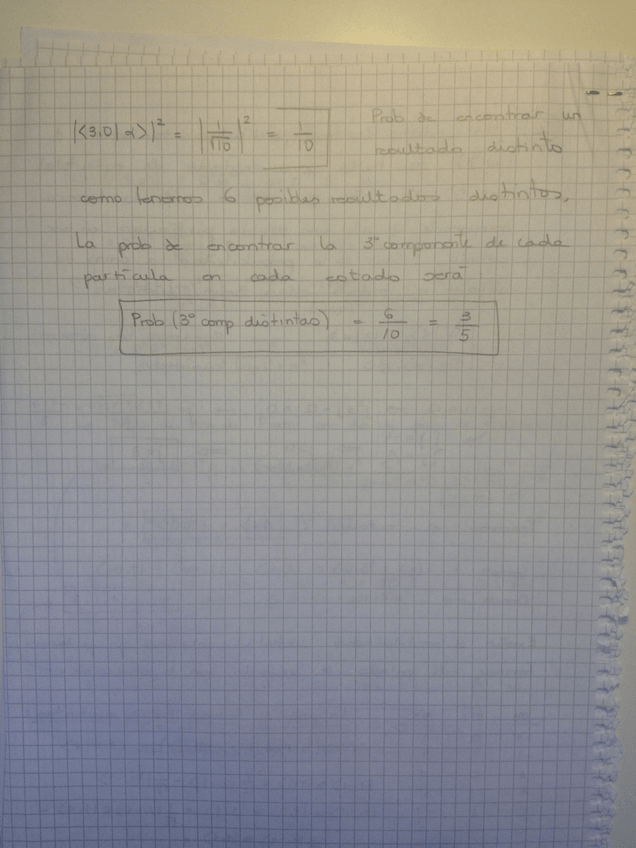 |<3,0|α>|² = |1/√10|² = 1/10 Prob de encontrar un
resultado distinto
como tenemos 6 posibles resultados distintos,
La prob de encontrar la 3ª componente de cada
partícula en cada estado será
Prob (3ª comp distintas) = 6/10 = 3/5